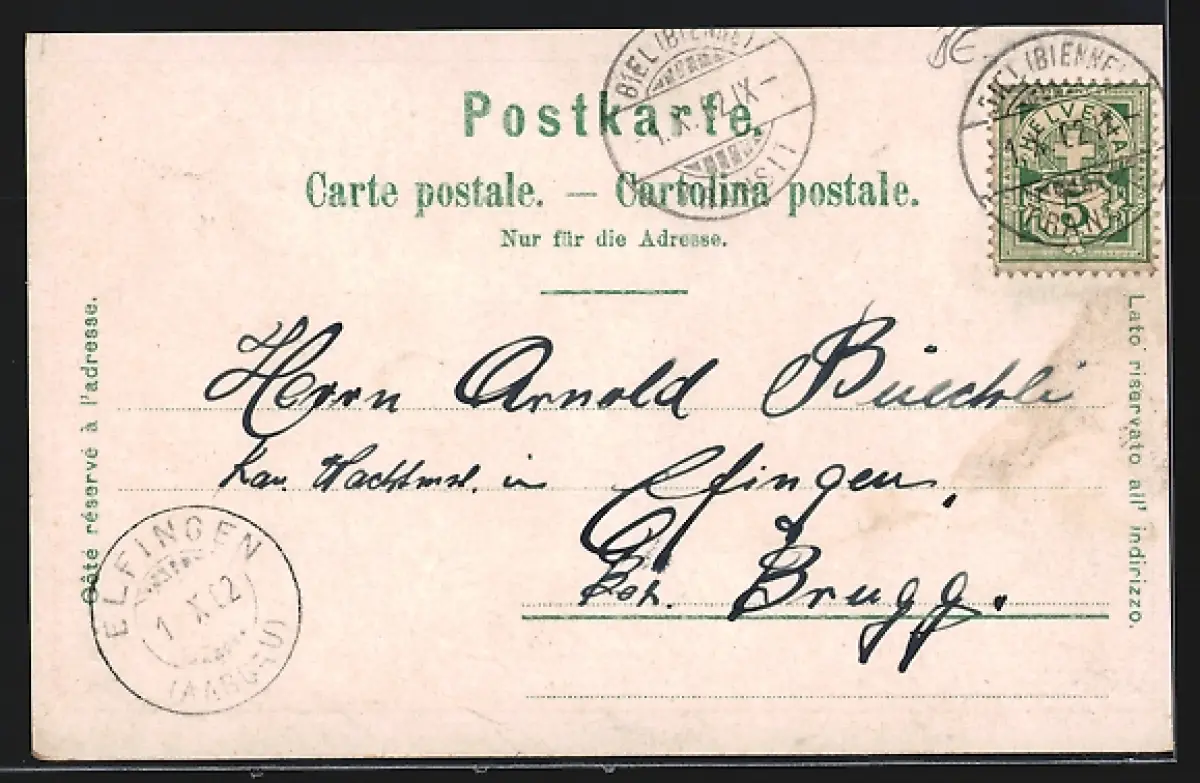 BE
Postkarte.
Carte postale. — Cartolina postale.
Nur für die Adresse.
BIEL (BIENNE)
1.X.02.IX–
BIEL (BIENNE)
1.X.02
HELVETIA
5
FRANCO
Côté réservé à l'adresse.
Lato riservato all' indirizzo.
Herrn Arnold Büechli
Kan. Wachtmst. in Efingen,
Bez. Brugg.
ELFINGEN
1 X 02
(AARGAU)